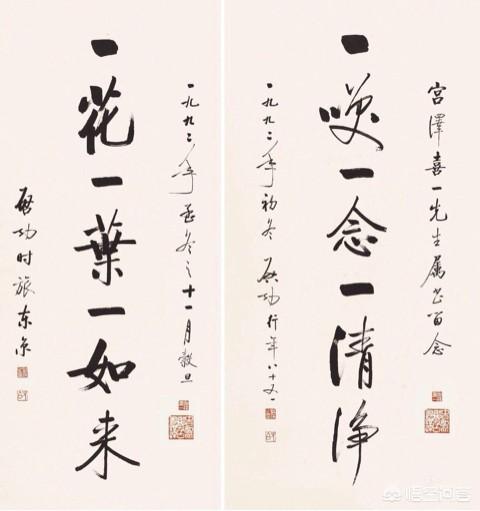 宫澤喜一先生属书留念
一咲一念一清浄
一九九二年初冬 啓功行年八十又一
一九九二年孟冬之十一月穀旦
一花一葉一如来
啓功时旅东京
悟空问答